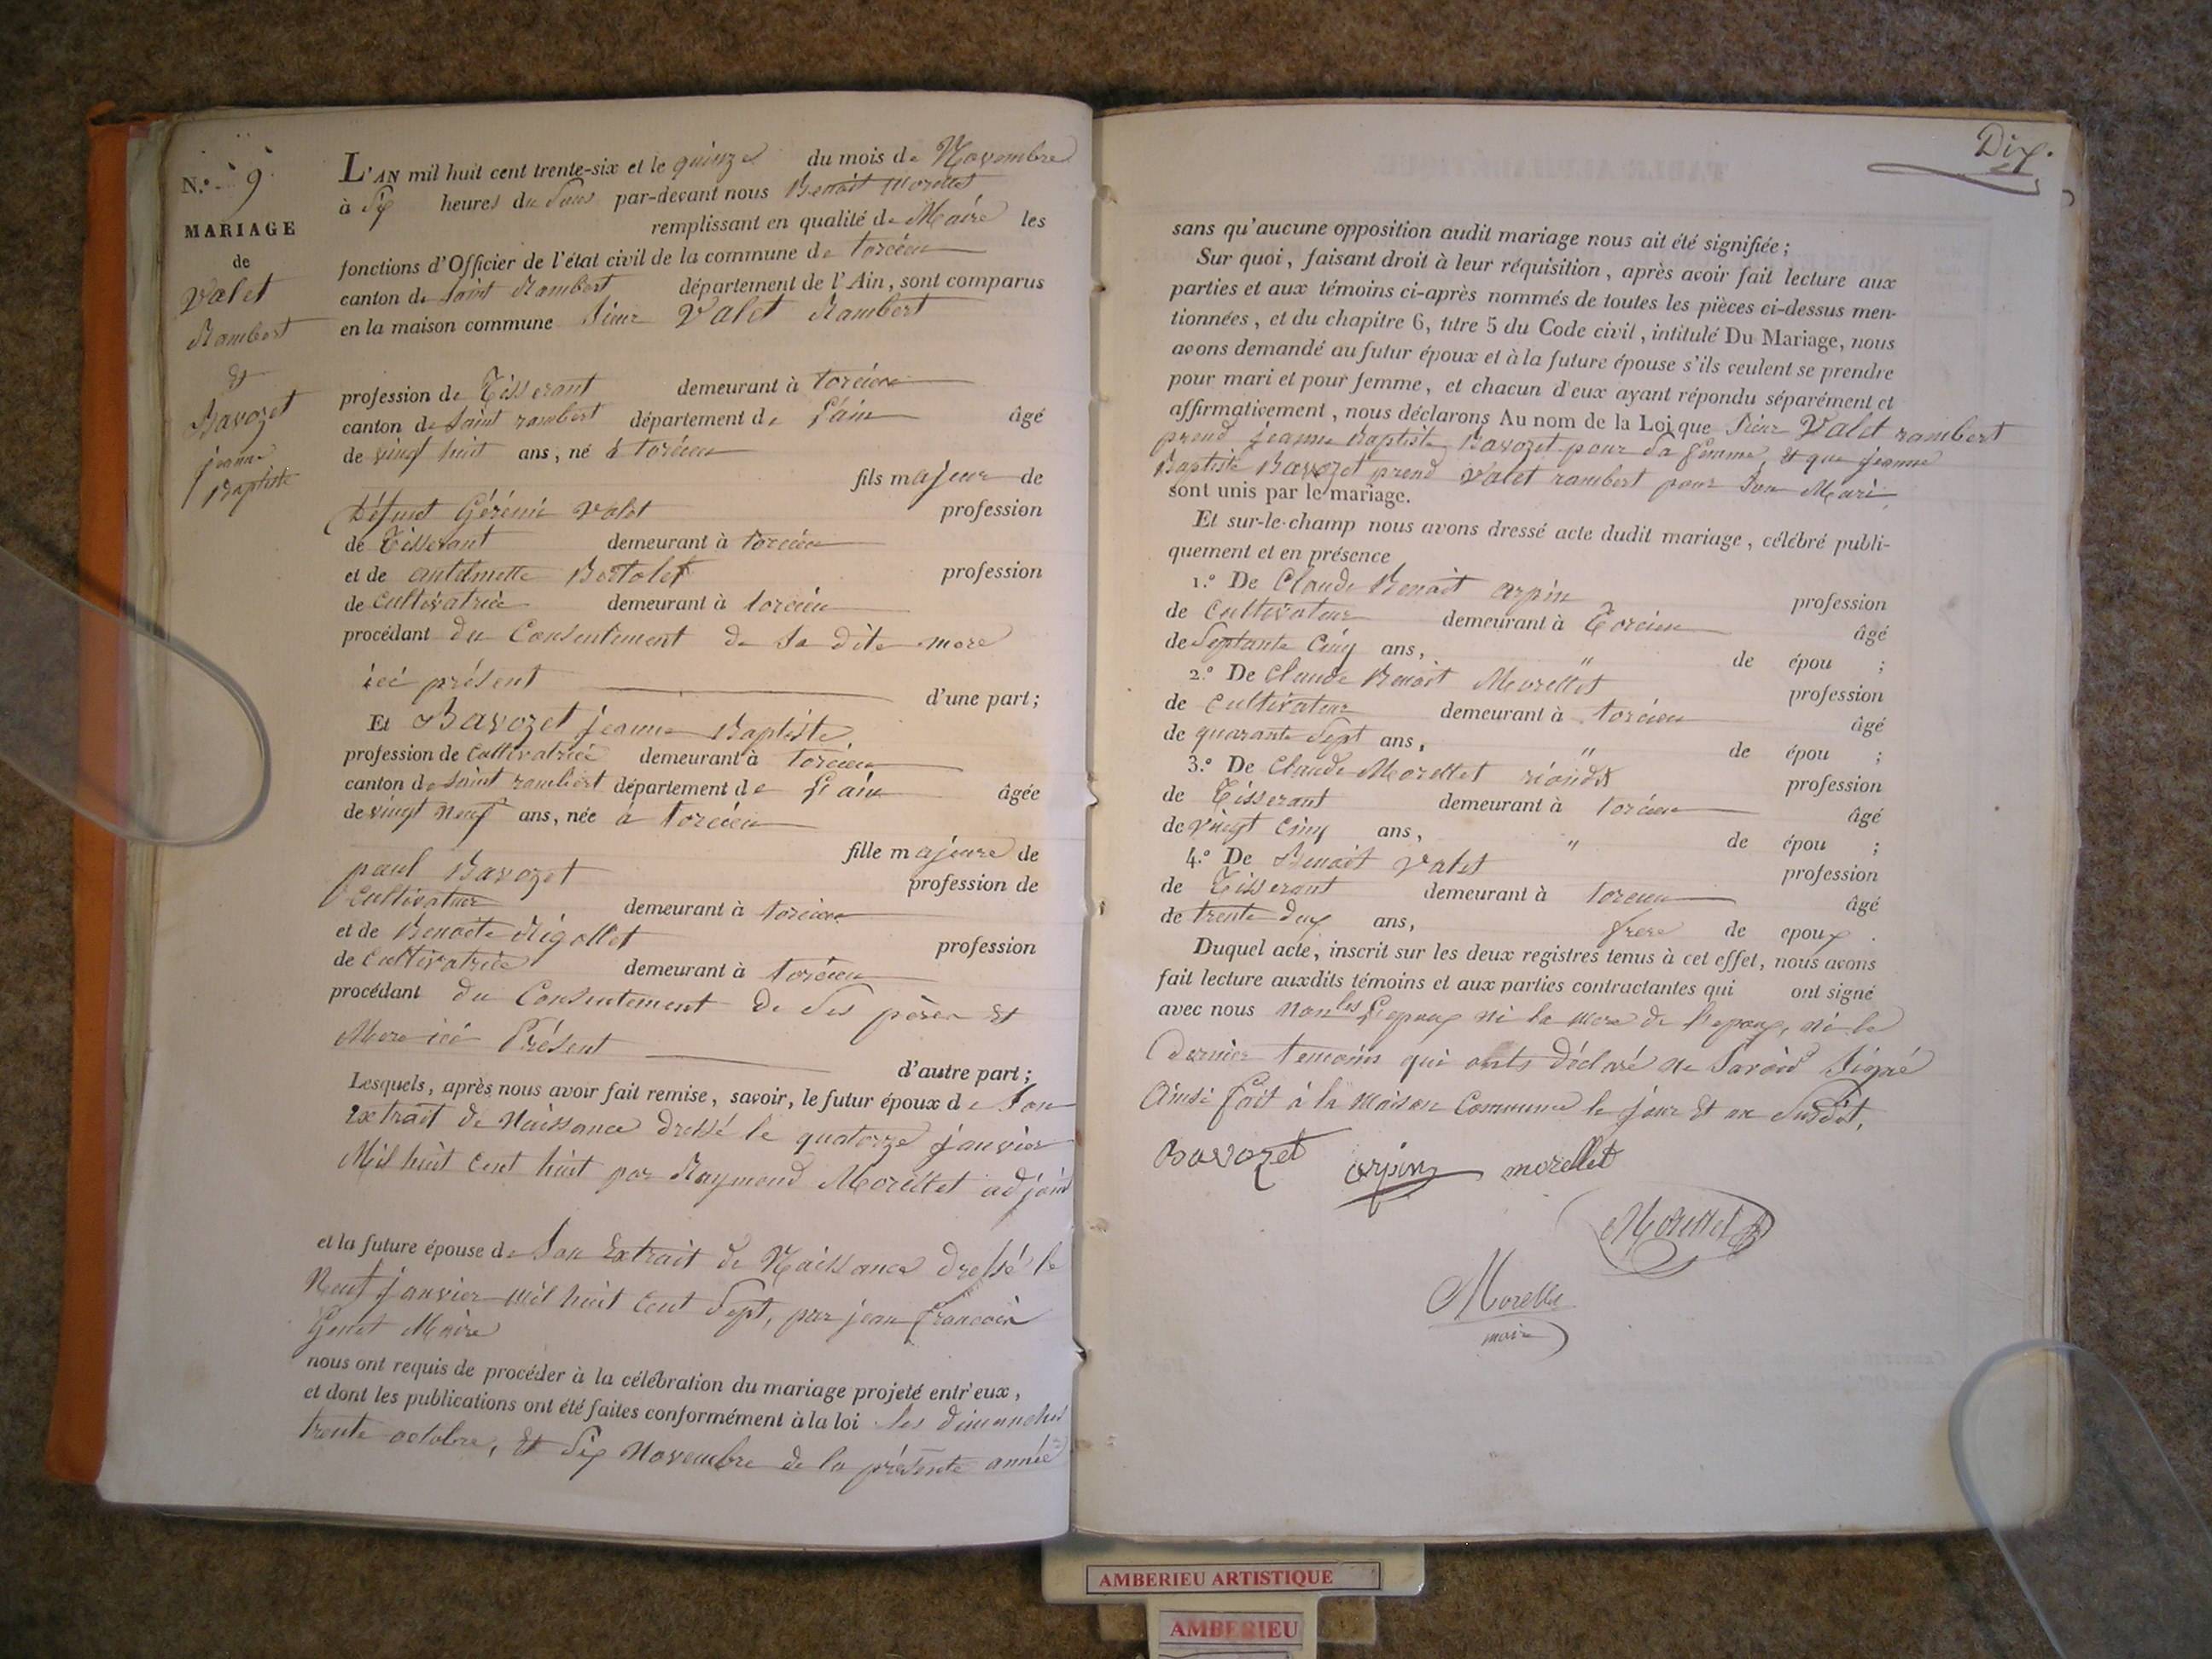 N.º 9
MARIAGE
de
Valet
Rambert
et
Bavozet
jeanne
Baptiste
L'AN mil huit cent trente-six et le quinze du mois de Novembre
à six heures du soir par-devant nous Benoit Morellet
remplissant en qualité de Maire les
fonctions d'Officier de l'état civil de la commune de torcieu
canton de Saint Rambert département de l'Ain, sont comparus
en la maison commune Sieur Valet Rambert
profession de Tisserant demeurant à torcieu
canton de Saint rambert département de l'ain âgé
de vingt huit ans, né à torcieu
fils majeur de
Défunt Gérémi Valet profession
de Tisserant demeurant à torcieu
et de antelmette Bertolet profession
de cultivatrice demeurant à torcieu
procédant du Consentement de sa dite mere
ici présent d'une part;
Et Bavozet jeanne Baptiste
profession de cultivatrice demeurant à torcieu
canton de Saint rambert département de l'ain âgée
de vingt neuf ans, née à torcieu
fille majeure de
paul Bavozet profession de
Cultivateur demeurant à torcieu
et de Benoite Rigollet profession
de Cultivatrice demeurant à torcieu
procédant du Consentement de ses pères et
Mere ici Présent d'autre part;
Lesquels, après nous avoir fait remise, savoir, le futur époux de son
extrait de Naissance dressé le quatorze janvier
Mil huit cent huit par Raymond Morellet adjoint
et la future épouse de son Extrait de Naissance dressé le
Neuf janvier mil huit cent sept, par jean francois
Genet Maire
nous ont requis de procéder à la célébration du mariage projeté entr'eux,
et dont les publications ont été faites conformément à la loi les dimanches
trente octobre, et six Novembre de la présente année
Dix.
sans qu'aucune opposition audit mariage nous ait été signifiée;
Sur quoi, faisant droit à leur réquisition, après avoir fait lecture aux
parties et aux témoins ci-après nommés de toutes les pièces ci-dessus men-
tionnées, et du chapitre 6, titre 5 du Code civil, intitulé Du Mariage, nous
avons demandé au futur époux et à la future épouse s'ils veulent se prendre
pour mari et pour femme, et chacun d'eux ayant répondu séparément et
affirmativement, nous déclarons Au nom de la Loi que Sieur Valet rambert
prend jeanne Baptiste Bavozet pour sa femme, et que jeanne
Baptiste Bavozet prend Valet rambert pour son Mari
sont unis par le mariage.
Et sur-le-champ nous avons dressé acte dudit mariage, célébré publi-
quement et en présence
1.º De Claude Benoit arpin profession
de Cultivateur demeurant à Torcieu âgé
de Septante Cinq ans, " de épou ;
2.º De Claude Benoit Morellet profession
de Cultivateur demeurant à torcieu âgé
de quarante Sept ans, " de épou ;
3.º De Claude Morellet profession
de Tisserant demeurant à torcieu âgé
de vingt Cinq ans, " de épou ;
4.º De Benoit Valet profession
de Tisserant demeurant à torcieu âgé
de trente deux ans, frere de epoux.
Duquel acte, inscrit sur les deux registres tenus à cet effet, nous avons
fait lecture auxdits témoins et aux parties contractantes qui ont signé
avec nous Non les Epoux ni la mere de l'epoux, ni le
Dernier temoin qui onts déclaré ne Savoir Signé
Ainsi fait à la Maison Commune le jour et an Susdit,
Bavozet arpin morellet
Morellet
Morellet
maire
AMBERIEU ARTISTIQUE
AMBERIEU